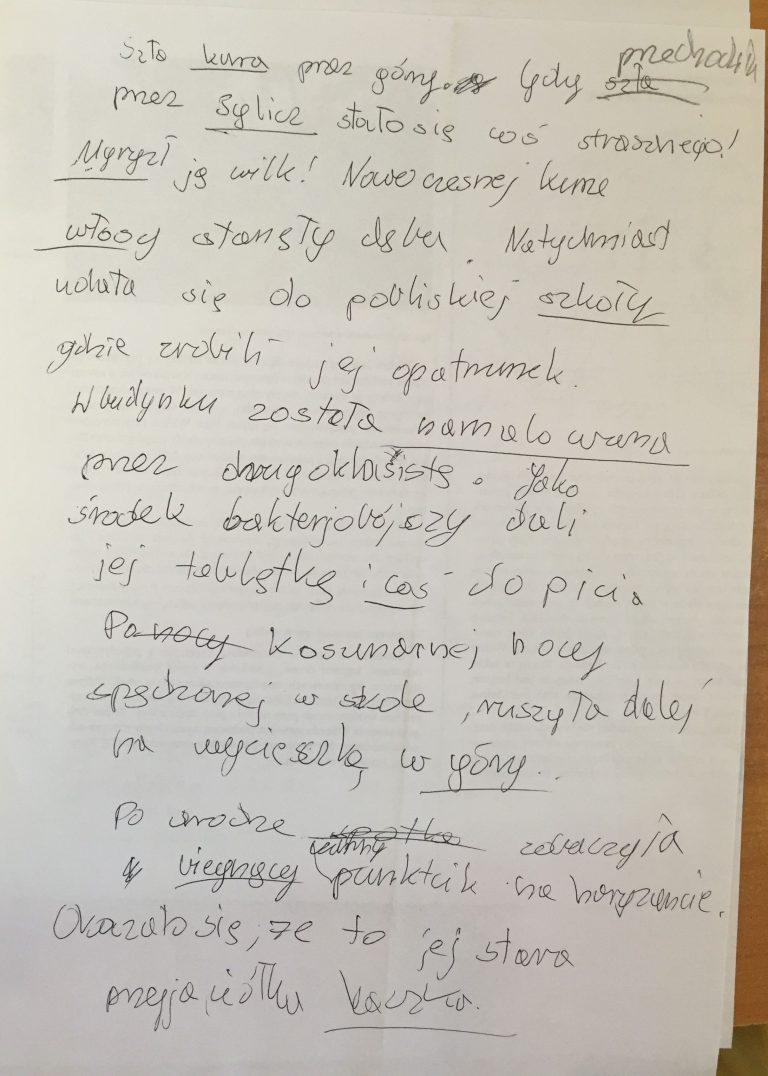 Szła kura przez góry. Gdy szła przechodziła
przez Sylicz stało się coś strasznego!
Mgryzł ją wilk! Nowoczesnej kurze
włosy stanęły dęba. Natychmiast
udała się do pobliskiej szkoły
gdzie zrobili jej opatrunek.
W budynku została namalowana
przez drugoklasistę. Jako
środek bakteriobójczy dali
jej tabletkę i coś do picia
Po nocy koszmarnej nocy
spędzonej w szkole, ruszyła dalej
na wycieczkę w góry..
Po drodze spotka zobaczyła
biegnący czarny punkcik na horyzoncie.
Okazało się, że to jej stara
przyjaciółka kaczka.